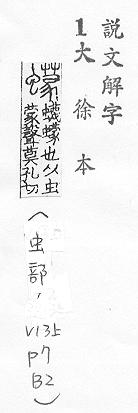 説文解字
1大徐本
蠓 蠛蠓也从虫
蒙聲莫孔切
(虫部,
V13上
P7
B2)